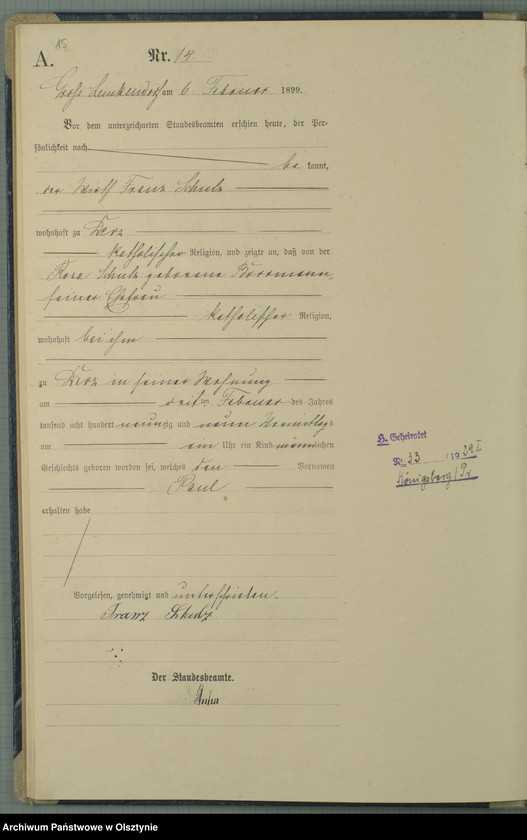 15
A.
Nr. 14
Gross Lemkendorf am 6. Februar 1899.
Vor dem unterzeichneten Standesbeamten erschien heute, der Per-
sönlichkeit nach
be kannt,
der Wirth Franz Schulz
wohnhaft zu Derz
katholischer Religion, und zeigte an, daß von der
Schulz geborene Borrmann,
seiner Ehefrau
katholischer Religion,
wohnhaft bei ihm
zu Derz in seiner Wohnung
am drit ten Februar des Jahres
tausend acht hundert neunzig und neun Vormittags
um ein Uhr ein Kind männlichen
Geschlechts geboren worden sei, welches den Vornamen
Paul
erhalten habe
Vorgelesen, genehmigt und unterschrieben.
Franz Schulz
Der Standesbeamte.
H. Geheiratet
Nr. 33 19 29 I
Königsberg/Pr
Archiwum Państwowe w Olsztynie